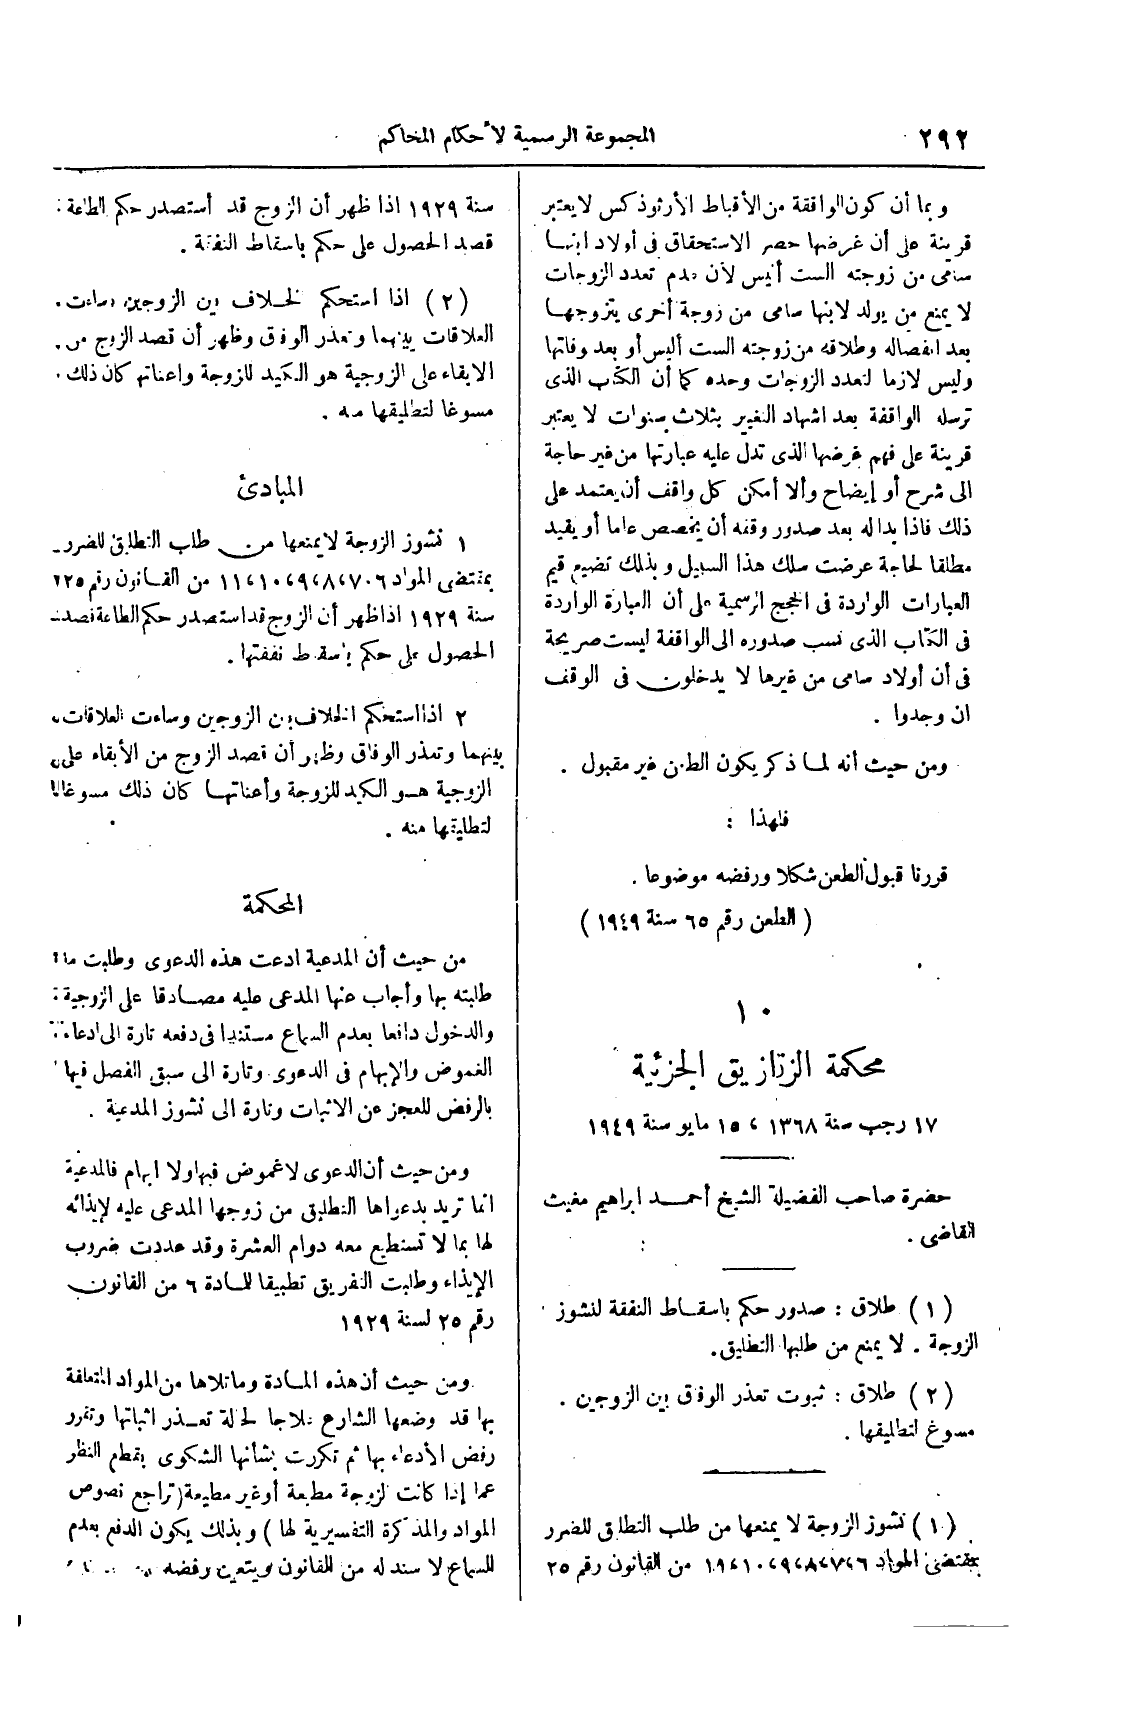 ٢٩٢
المجموعة الرسمية لأحكام المحاكم
وبما أن كون الواقفة من الأقباط الأرثوذكس لايعتبر
قرينة على أن غرضها حصر الاستحقاق فى أولاد ابنها
سامى من زوجته الست أليس لأن عدم تعدد الزوجات
لا يمنع من يولد لابنها سامى من زوجة أخرى يتزوجها
بعد انفصاله وطلاقه من زوجته الست أليس أو بعد وفاتها
وليس لازما لتعدد الزوجات وحده كما أن الكتاب الذى
ترسله الواقفة بعد اشهاد التغيير بثلاث سنوات لا يعتبر
قرينة على فهم غرضها الذى تدل عليه عبارتها من غير حاجة
الى شرح أو إيضاح وألا أمكن كل واقف أن يعتمد على
ذلك فاذا بدا له بعد صدور وقفه أن يخصص عاما أو يقيد
مطلقا لحاجة عرضت سلك هذا السبيل وبذلك تضيع قيم
العبارات الواردة فى الحجج الرسمية على أن العبارة الواردة
فى الكتاب الذى نسب صدوره الى الواقفة ليست صريحة
فى أن أولاد سامى من غيرها لا يدخلون فى الوقف
ان وجدوا .
ومن حيث أنه لما ذكر يكون الطعن غير مقبول .
فلهذا :
قررنا قبول الطعن شكلا ورفضه موضوعا .
( الطعن رقم ٦٥ سنة ١٩٤٩ )
١٠
محكمة الزقازيق الجزئية
١٧ رجب سنة ١٣٦٨ ، ١٥ مايو سنة ١٩٤٩
حضرة صاحب الفضيلة الشيخ أحمد ابراهيم مغيث
القاضى .
( ١ ) طلاق : صدور حكم باسقاط النفقة لنشوز
الزوجة . لا يمنع من طلبها التطليق .
( ٢ ) طلاق : ثبوت تعذر الوفاق بين الزوجين .
مسوغ لتطليقها .
( ١ ) نشوز الزوجة لا يمنعها من طلب التطلق للضرر
بمقتضى المواد ٦،٧،٨،٩،١٠،١٩ من القانون رقم ٢٥
سنة ١٩٢٩ اذا ظهر أن الزوج قد أستصدر حكم الطاعة
قصد الحصول على حكم باسقاط النفقة .
( ٢ ) اذا استحكم الخلاف بين الزوجين وساءت
العلاقات بينهما وتعذر الوفاق وظهر أن قصد الزوج من
الابقاء على الزوجية هو الكيد للزوجة واعناتها كان ذلك
مسوغا لتطليقها منه .
المبادئ
١ نشوز الزوجة لا يمنعها من طلب التطلق للضرر
بمقتضى المواد ٦،٧،٨،٩،١٠،١١ من القانون رقم ٢٥
سنة ١٩٢٩ اذا ظهر أن الزوج قد استصدر حكم الطاعة قصد
الحصول على حكم باسقاط نفقتها .
٢ اذا استحكم الخلاف بين الزوجين وساءت العلاقات
بينهما وتعذر الوفاق وظهر أن قصد الزوج من الأبقاء على
الزوجية هو الكيد للزوجة وأعناتها كان ذلك مسوغا
لتطليقها منه .
المحكمة
من حيث أن المدعية ادعت هذه الدعوى وطلبت ما
طلبته بها وأجاب عنها المدعى عليه مصادقا على الزوجية
والدخول دافعا بعدم السماع مستندا فى دفعه تارة الى ادعاء
الغموض والإبهام فى الدعوى وتارة الى سبق الفصل فيها
بالرفض للعجز عن الاثبات وتارة الى نشوز المدعية .
ومن حيث أن الدعوى لا غموض فيها ولا ابهام فالمدعية
انما تريد بدعواها التطليق من زوجها المدعى عليه لإيذائه
لها بما لا تستطيع معه دوام العشرة وقد عددت ضروب
الإيذاء وطلبت التفريق تطبيقا للمادة ٦ من القانون
رقم ٢٥ لسنة ١٩٢٩
ومن حيث أن هذه المادة وما تلاها من المواد المتعلقة
بها قد وضعها الشارع علاجا لحالة تعذر اثباتها وتقرر
رفض الأدعاء بها ثم تكررت بشأنها الشكوى بقطع النظر
عما إذا كانت الزوجة مطيعة أو غير مطيعة ( تراجع نصوص
المواد والمذكرة التفسيرية لها ) وبذلك يكون الدفع بعدم
السماع لا سند له من القانون ويتعين رفضه